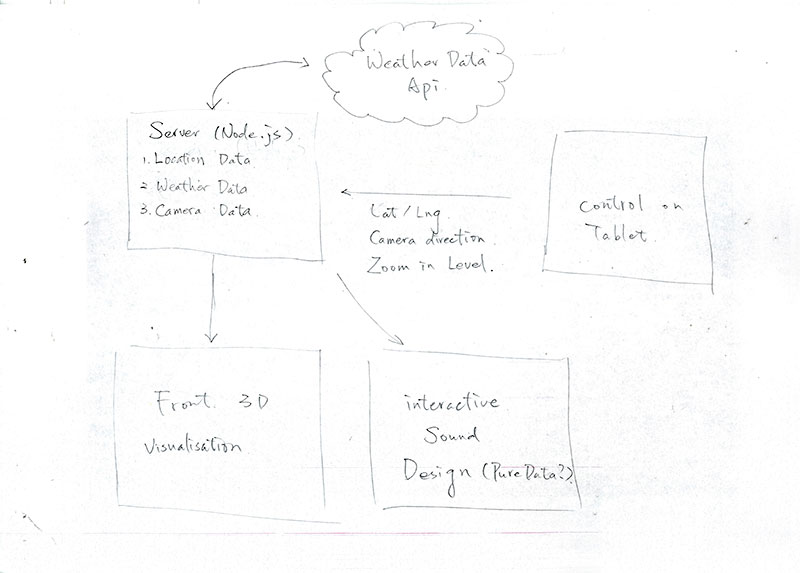 Weather Data
Api.
Server (Node.js)
1. Location Data
2. Weather Data
3. Camera Data
Lat / Lng.
Camera direction
Zoom in Level.
Control on
Tablet.
Front 3D
Visualisation
interactive
Sound
Design (PureData?)